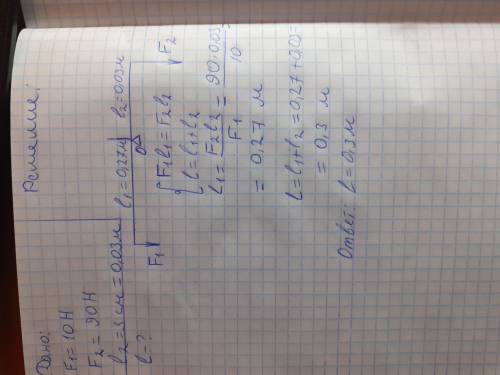 Дано:
F₁ = 10 Н
F₂ = 90 Н
l₂ = 3 см = 0,03 м
l = ?
Решение:
l₁ = 0,27 м l₂ = 0,03 м
O
F₁ F₂
F₁l₁ = F₂l₂
l = l₁ + l₂
l₁ = F₂l₂ / F₁ = 90·0,03 / 10
= 0,27 м
l = l₁ + l₂ = 0,27 + 0,03 =
= 0,3 м
Ответ: l = 0,3 м